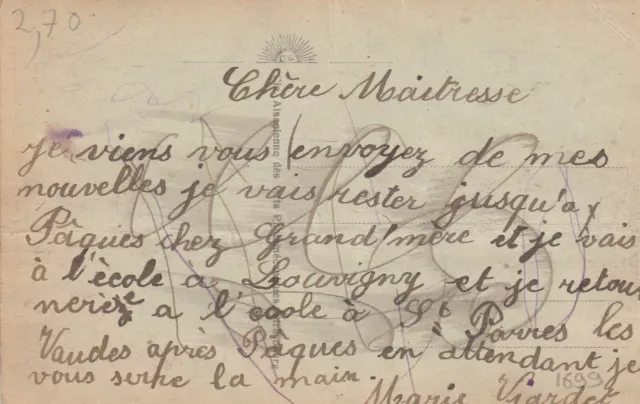 2,70
Chère Maitresse
je viens vous envoyez de mes
nouvelles je vais rester jusqu'a
Pâques chez Grand'mère et je vais
à l'école à Louvigny et je retour
nerez a l'école à St Parres les
Vaudes après Pâques en attendant je
vous serre la main
Marie Viardet
1699
Alsacienne des Arts Photomécaniques